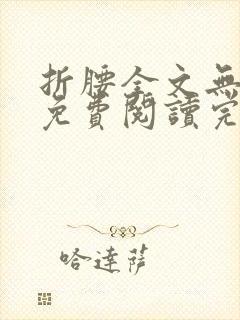 折腰全文無
免費閱讀完
哈達薩